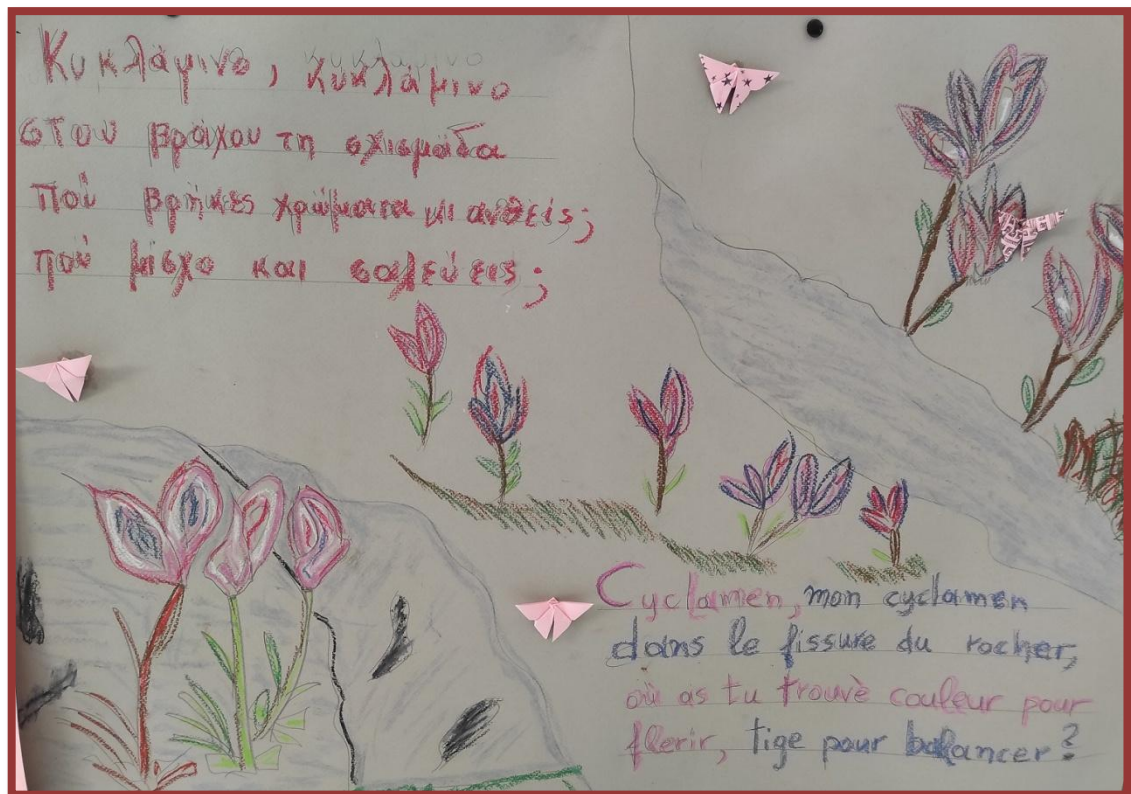 Κυκλάμινο, κυκλάμινο
στου βράχου τη σχισμάδα
πού βρήκες χρώματα κι ανθείς;
πού μίσχο και σαλεύεις;
Cyclamen, mon cyclamen
dans le fissure du rocher,
où as tu trouvè couleur pour
flerir, tige pour balancer?